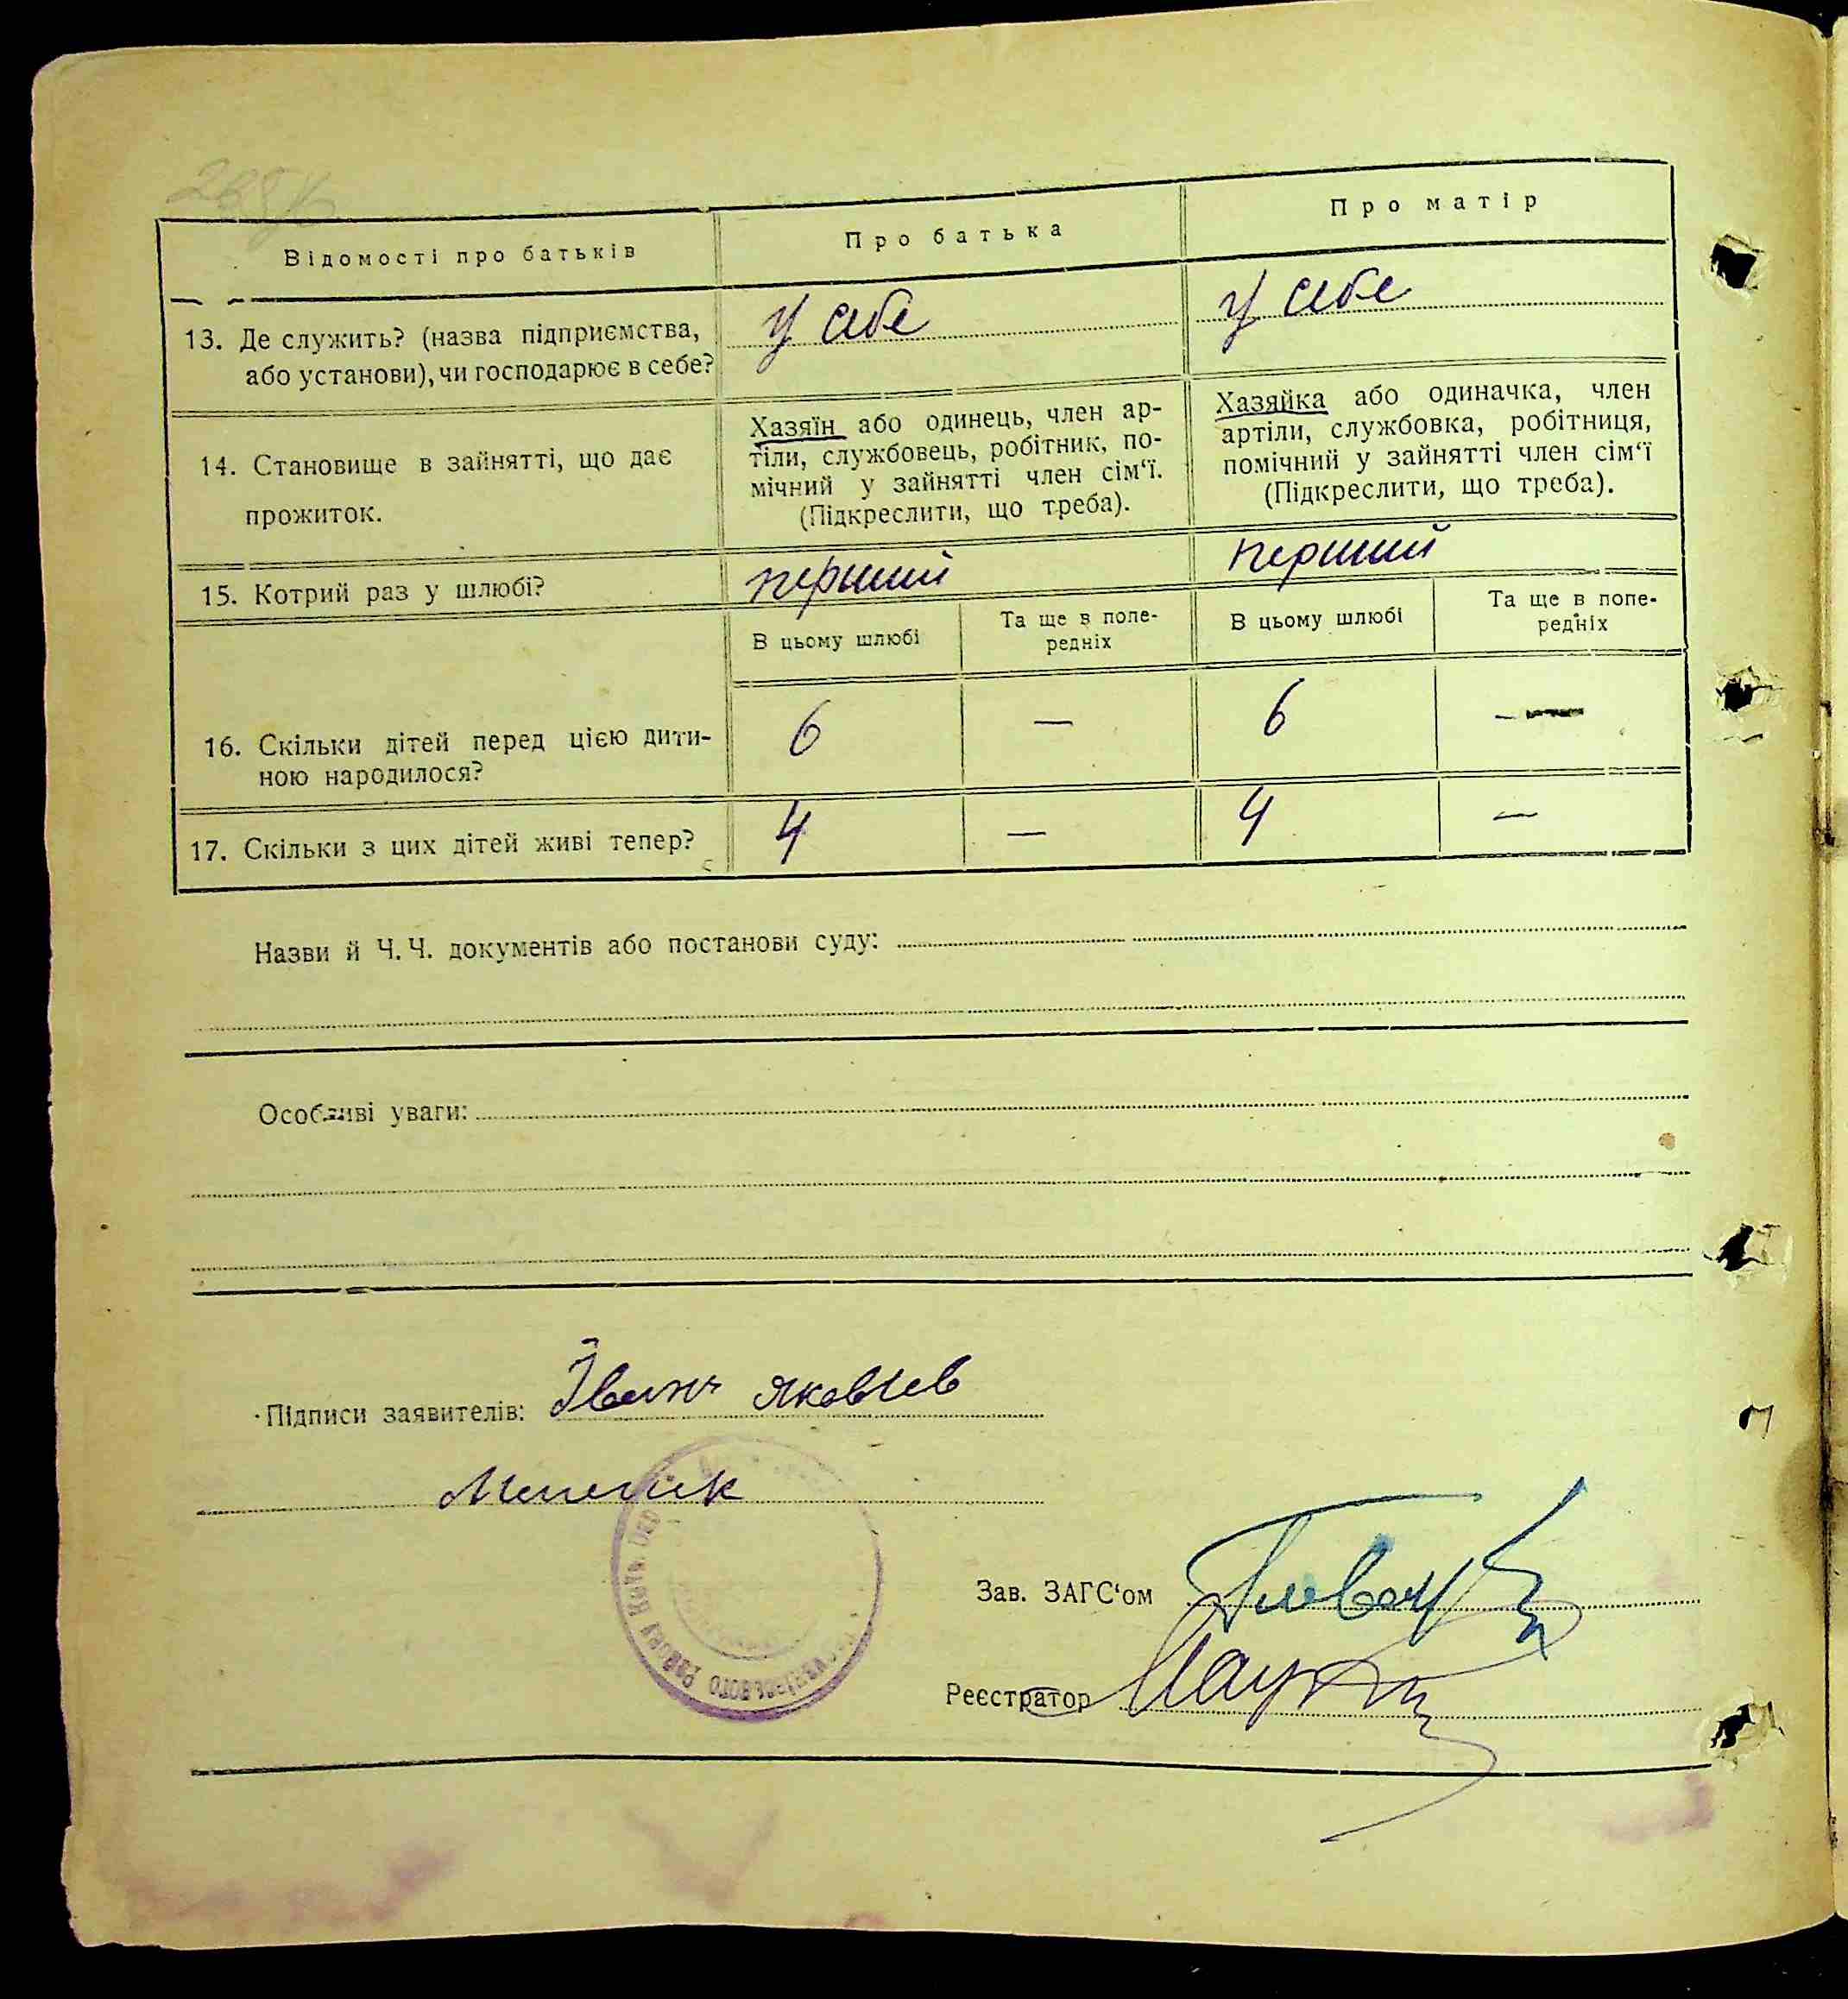 Відомості про батьків
Про батька
Про матір
13. Де служить? (назва підприємства,
або установи), чи господарює в себе?
у себе
у себе
14. Становище в зайнятті, що дає
прожиток.
Хазяїн або одинець, член ар-
тіли, службовець, робітник, по-
мічний у зайнятті член сім‘ї.
(Підкреслити, що треба).
Хазяйка або одиначка, член
артіли, службовка, робітниця,
помічний у зайнятті член сім‘ї
(Підкреслити, що треба).
15. Котрий раз у шлюбі?
перший
перший
В цьому шлюбі
Та ще в попе-
редніх
В цьому шлюбі
Та ще в попе-
редніх
16. Скільки дітей перед цією дити-
ною народилося?
6
—
6
—
17. Скільки з цих дітей живі тепер?
4
—
4
—
Назви й Ч. Ч. документів або постанови суду:
Особливі уваги:
Підписи заявителів: Іван Яковлев
Зав. ЗАГС‘ом
Реєстратор